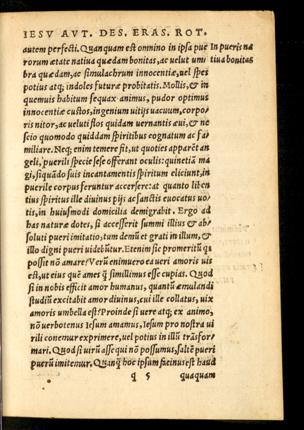 IESV AVT. DES. ERAS. ROT.
autem perfecti. Quanquam est omnino in ipsa pue
In pueris na
rorum ætate natiua quædam bonitas, ac uelut um
tiua bonitas
bra quædam, ac simulachrum innocentiæ, uel spes
potius atq; indoles futuræ probitatis. Mollis, & in
quemuis habitum sequax animus, pudor optimus
innocentiæ custos, ingenium uitijs uacuum, corpo
ris nitor, ac ueluti flos quidam uernantis æui, & ne
scio quomodo quiddam spiritibus cognatum ac fa
miliare. Neq; enim temere fit, ut quoties apparēt an
geli, puerili specie sese offerant oculis: quinetiā ma
gi, siquādo suis incantamentis spiritum eliciunt, in
puerile corpus feruntur accersere: at quanto liben
tius spiritus ille diuinus pijs ac sanctis euocatus uo-
tis, in huiusmodi domicilia demigrabit. Ergo ad
has naturæ dotes, si accesserit summi illius & ab-
soluti pueri imitatio, tum demū et grati in illum, &
illo digni pueri uidebūtur. Etenim sic promeritū q̄s
possit nō amare? Verū enimuero ea ueri amoris uis
est, ut eius quē ames q̄ simillimus esse cupias. Quod
si in nobis efficit amor humanus, quantū æmulandi
studiū excitabit amor diuinus, cui ille collatus, uix
amoris umbella est? Proinde si uere atq; ex animo,
nō uerbotenus Iesum amamus, Iesum pro nostra ui
rili conemur exprimere, uel potius in illū trāsfor-
mari. Quod si uirū asse qui nō possumus, saltē pueri
puerū imitemur. Quanq̄ hoc ipsum facinus est haud
q 5
quaquam